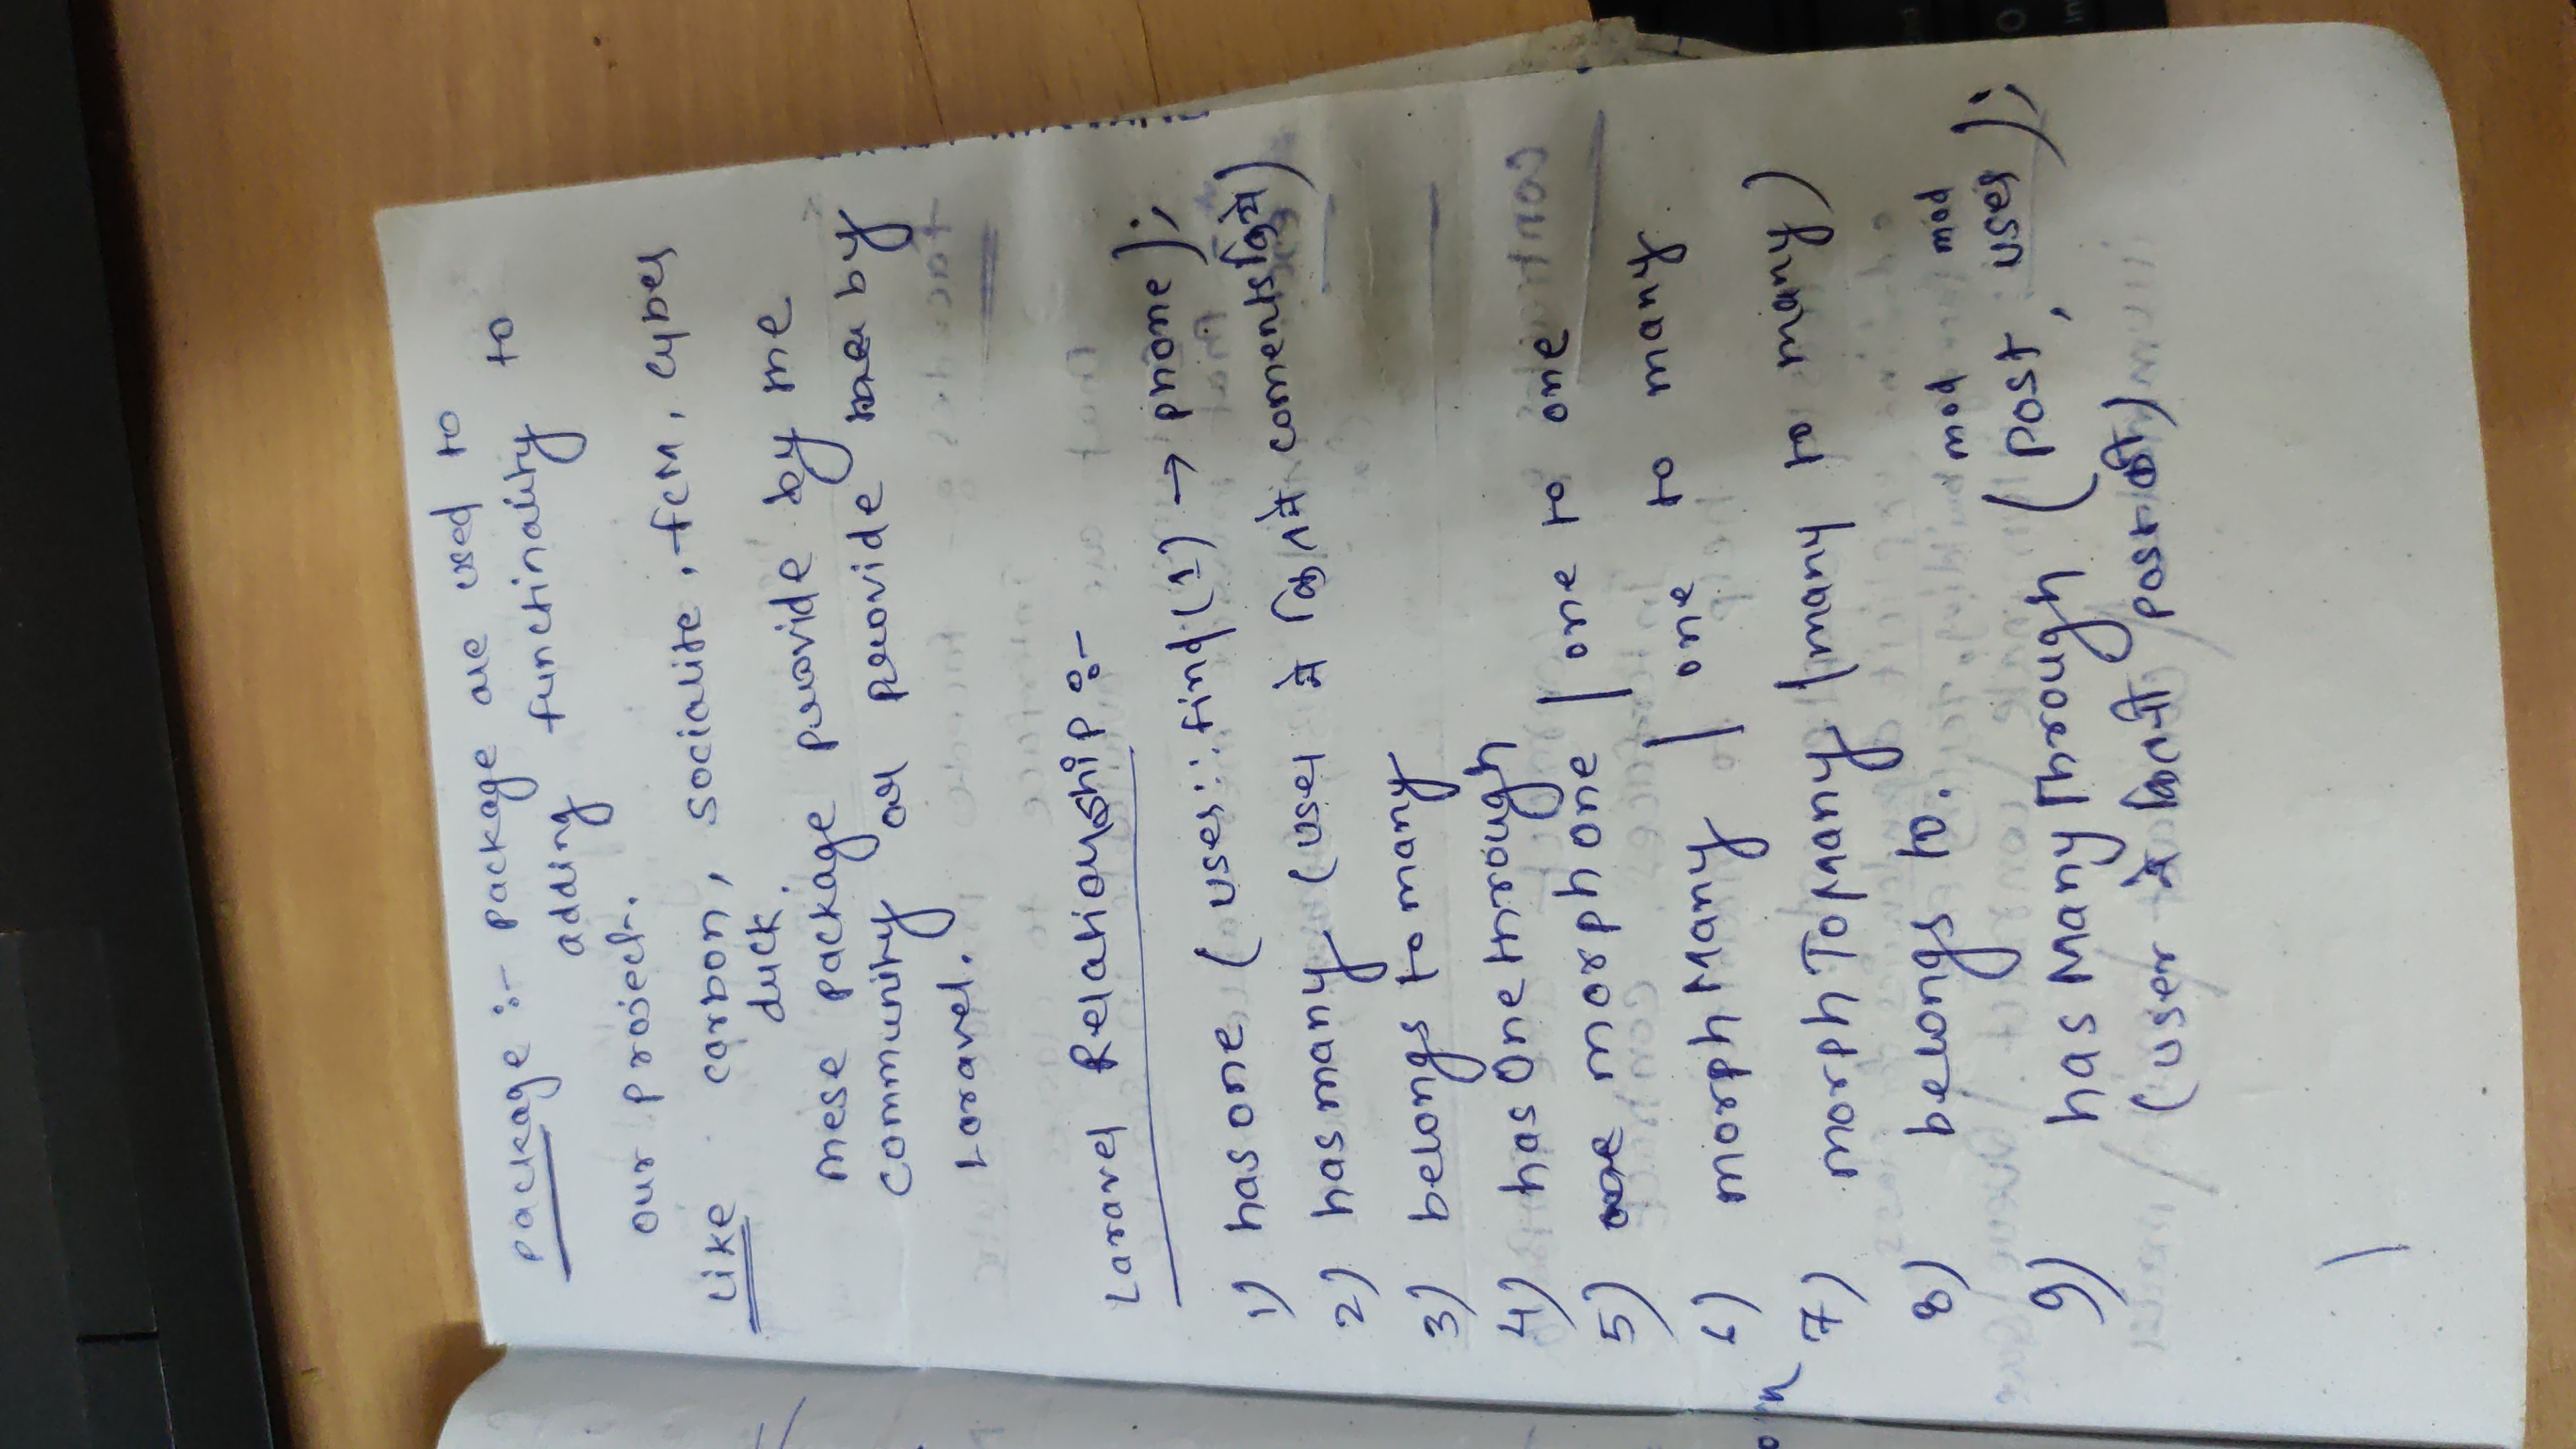 package :- package are used to
adding functinality to
our project.
Like carbon, socialite, fcm, cyber
duck.
These package provide by the
community or provide by
Laravel.
Laravel Relationship :-
1) has one ( user :: find (1) → phone );
2) has many (user ने कितने coments किये)
3) belongs to many
4) has One through
5) morph one | one to one
6) morph Many | one to many
7) morph To Many (many to many)
8) belongs to.
mod mod
9) has Many Through ( post, user );
(user ने कितनी post की)